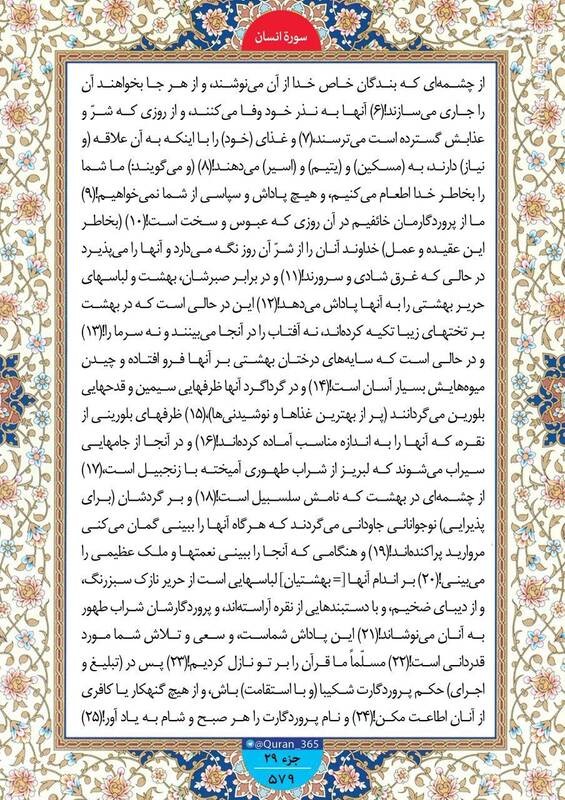 سورهٔ انسان
از چشمه‌ای که بندگان خاص خدا از آن می‌نوشند، و از هر جا بخواهند آن
را جاری می‌سازند!(۶) آنها به نذر خود وفا می‌کنند، و از روزی که شرّ و
عذابش گسترده است می‌ترسند،(۷) و غذای (خود) را با اینکه به آن علاقه (و
نیاز) دارند، به (مسکین) و (یتیم) و (اسیر) می‌دهند!(۸) (و می‌گویند): ما شما
را بخاطر خدا اطعام می‌کنیم، و هیچ پاداش و سپاسی از شما نمی‌خواهیم!(۹)
ما از پروردگارمان خائفیم در آن روزی که عبوس و سخت است!(۱۰) (بخاطر
این عقیده و عمل) خداوند آنان را از شرّ آن روز نگه می‌دارد و آنها را می‌پذیرد
در حالی که غرق شادی و سرورند!(۱۱) و در برابر صبرشان، بهشت و لباسهای
حریر بهشتی را به آنها پاداش می‌دهد!(۱۲) این در حالی است که در بهشت
بر تختهای زیبا تکیه کرده‌اند، نه آفتاب را در آنجا می‌بینند و نه سرما را!(۱۳)
و در حالی است که سایه‌های درختان بهشتی بر آنها فرو افتاده و چیدن
میوه‌هایش بسیار آسان است!(۱۴) و در گرداگرد آنها ظرفهایی سیمین و قدحهایی
بلورین می‌گردانند (پر از بهترین غذاها و نوشیدنی‌ها)،(۱۵) ظرفهای بلورینی از
نقره، که آنها را به اندازه مناسب آماده کرده‌اند!(۱۶) و در آنجا از جامهایی
سیراب می‌شوند که لبریز از شراب طهوری آمیخته با زنجبیل است،(۱۷)
از چشمه‌ای در بهشت که نامش سلسبیل است!(۱۸) و بر گردشان (برای
پذیرایی) نوجوانانی جاودانی می‌گردند که هرگاه آنها را ببینی گمان می‌کنی
مروارید پراکنده‌اند!(۱۹) و هنگامی که آنجا را ببینی نعمتها و ملک عظیمی را
می‌بینی!(۲۰) بر اندام آنها [= بهشتیان] لباسهایی است از حریر نازک سبزرنگ،
و از دیبای ضخیم، و با دستبندهایی از نقره آراسته‌اند، و پروردگارشان شراب طهور
به آنان می‌نوشاند!(۲۱) این پاداش شماست، و سعی و تلاش شما مورد
قدردانی است!(۲۲) مسلّماً ما قرآن را بر تو نازل کردیم!(۲۳) پس در (تبلیغ و
اجرای) حکم پروردگارت شکیبا (و با استقامت) باش، و از هیچ گنهکار یا کافری
از آنان اطاعت مکن!(۲۴) و نام پروردگارت را هر صبح و شام به یاد آور!(۲۵)
@Quran_365
جزء ۲۹
۵۷۹